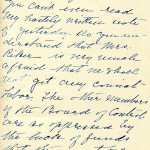 You can't even read
my hastily written note
of yesterday. Do you un-
derstand that Mrs.
Baker is very much
afraid that we shall
not get any counsel-
lator. The other members
of the Board of Control
are so oppressed by
the lack of funds